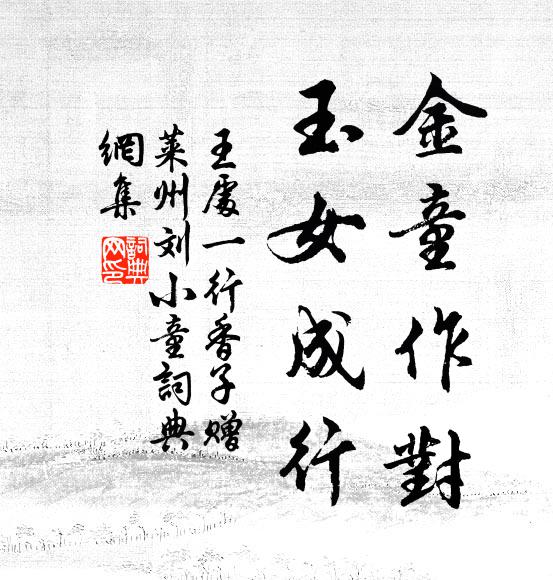 金童作對
玉女成行
王處一行香子赠
萊州刘小童詞典
網集
詞典
网印